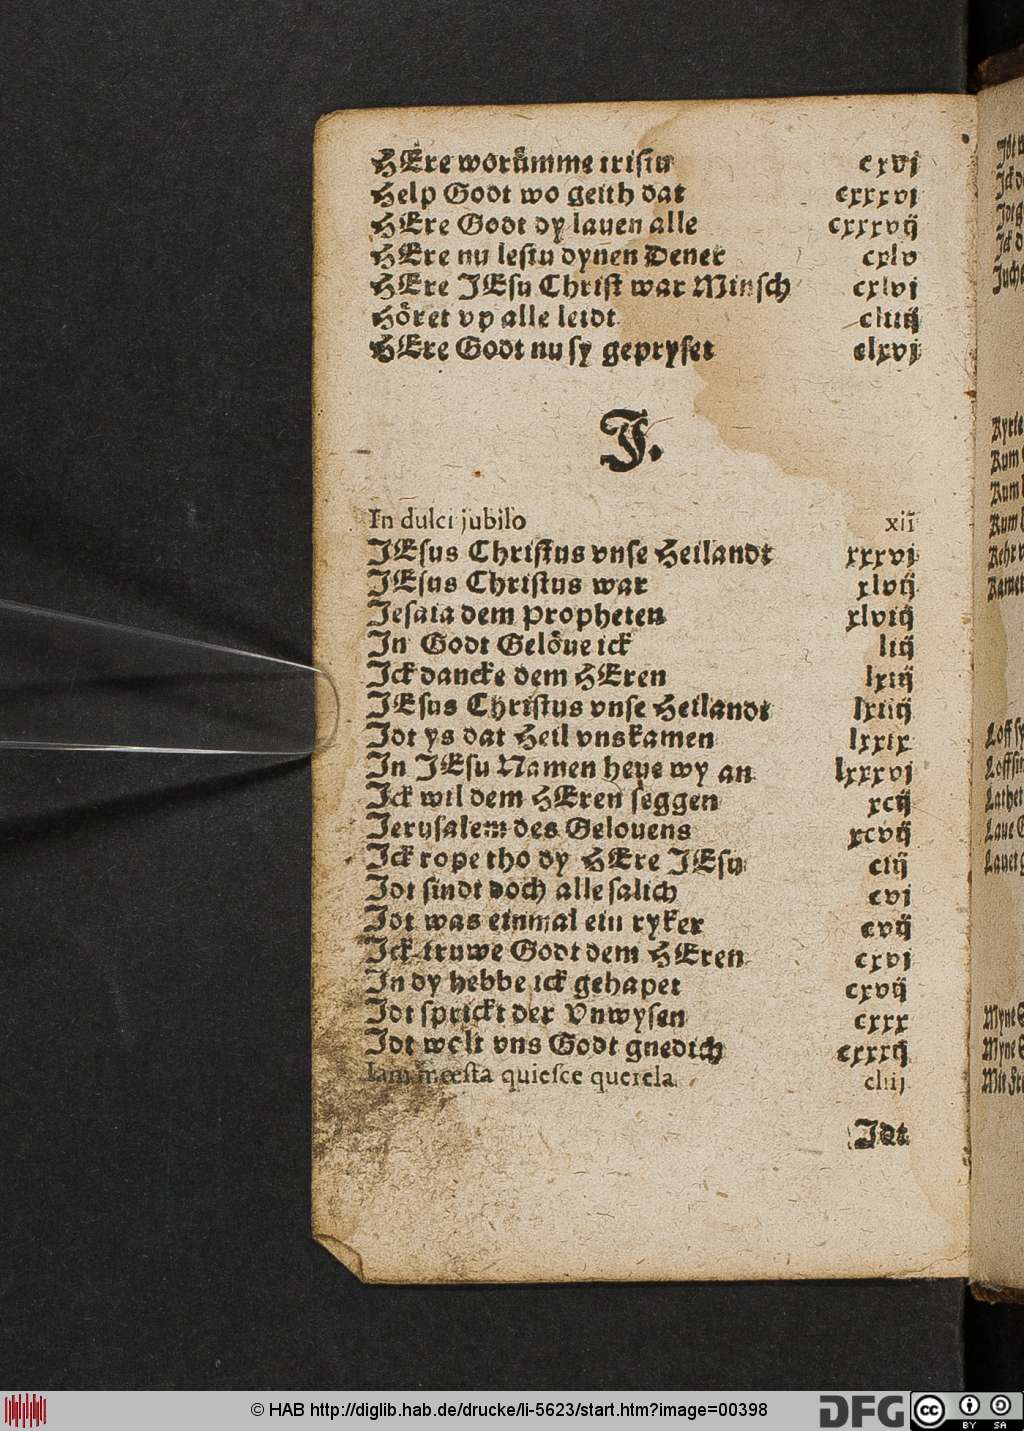 HEre worümme tristu cxvj
Help Godt wo geith dat cxxxvj
HEre Godt dy lauen alle cxxxvij
HEre nu lestu dynen Dener cxlv
HEre JEsu Christ war Minsch cxlvj
Höret vp alle leidt cliiij
HEre Godt nu sy gepryset clxvj
J.
In dulci jubilo xii
JEsus Christus vnse Heilandt xxxvj
JEsus Christus war xlvij
Jesaia dem Propheten xlviij
In Godt Gelöue ick liij
Ick dancke dem HEren lxiij
JEsus Christus vnse Heilandt lxiiij
Idt ys dat Heil vns kamen lxxix
In JEsu Namen heue wy an lxxxvj
Ick wil dem HEren seggen xcij
Jerusalem des Gelouens xcvij
Ick rope tho dy HEre JEsu ciij
Idt sindt doch alle salich cvj
Idt was einmal ein ryker cvij
Ick truwe Godt dem HEren cxvj
In dy hebbe ick gehapet cxvij
Idt sprickt der Vnwysen cxxx
Idt wolt vns Godt gnedich cxxxij
Iam mœsta quiesce querela cliij
Idt
© HAB http://diglib.hab.de/drucke/li-5623/start.htm?image=00398
DFG
cc BY SA